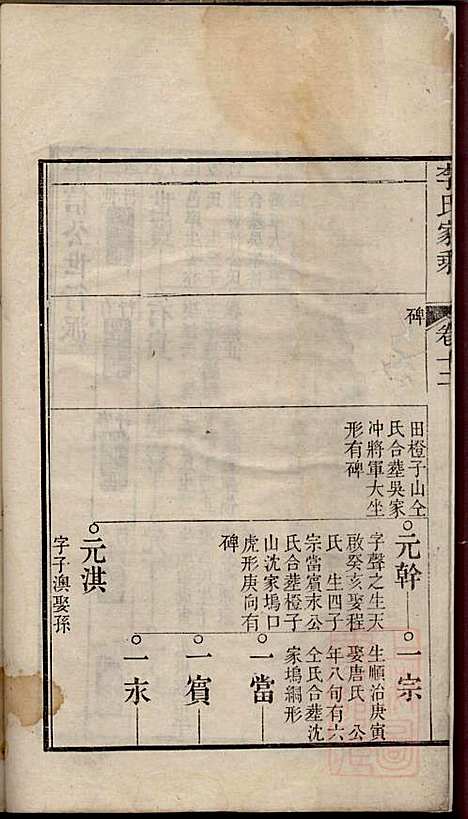 李氏家乘
卷十二
碑
田橙子山仝
氏合塟吳家
冲將軍大坐
形有碑
元幹
字聲之生天
啟癸亥娶程
氏 生四子
宗當賓永公
氏合塟橙子
山沈家塢口
虎形庚向有
碑
元淇
字子澳娶孫
一宗
生順治庚寅
娶唐氏 公
年八旬有六
仝氏合塟沈
家塢綱形
一當
一賓
一永